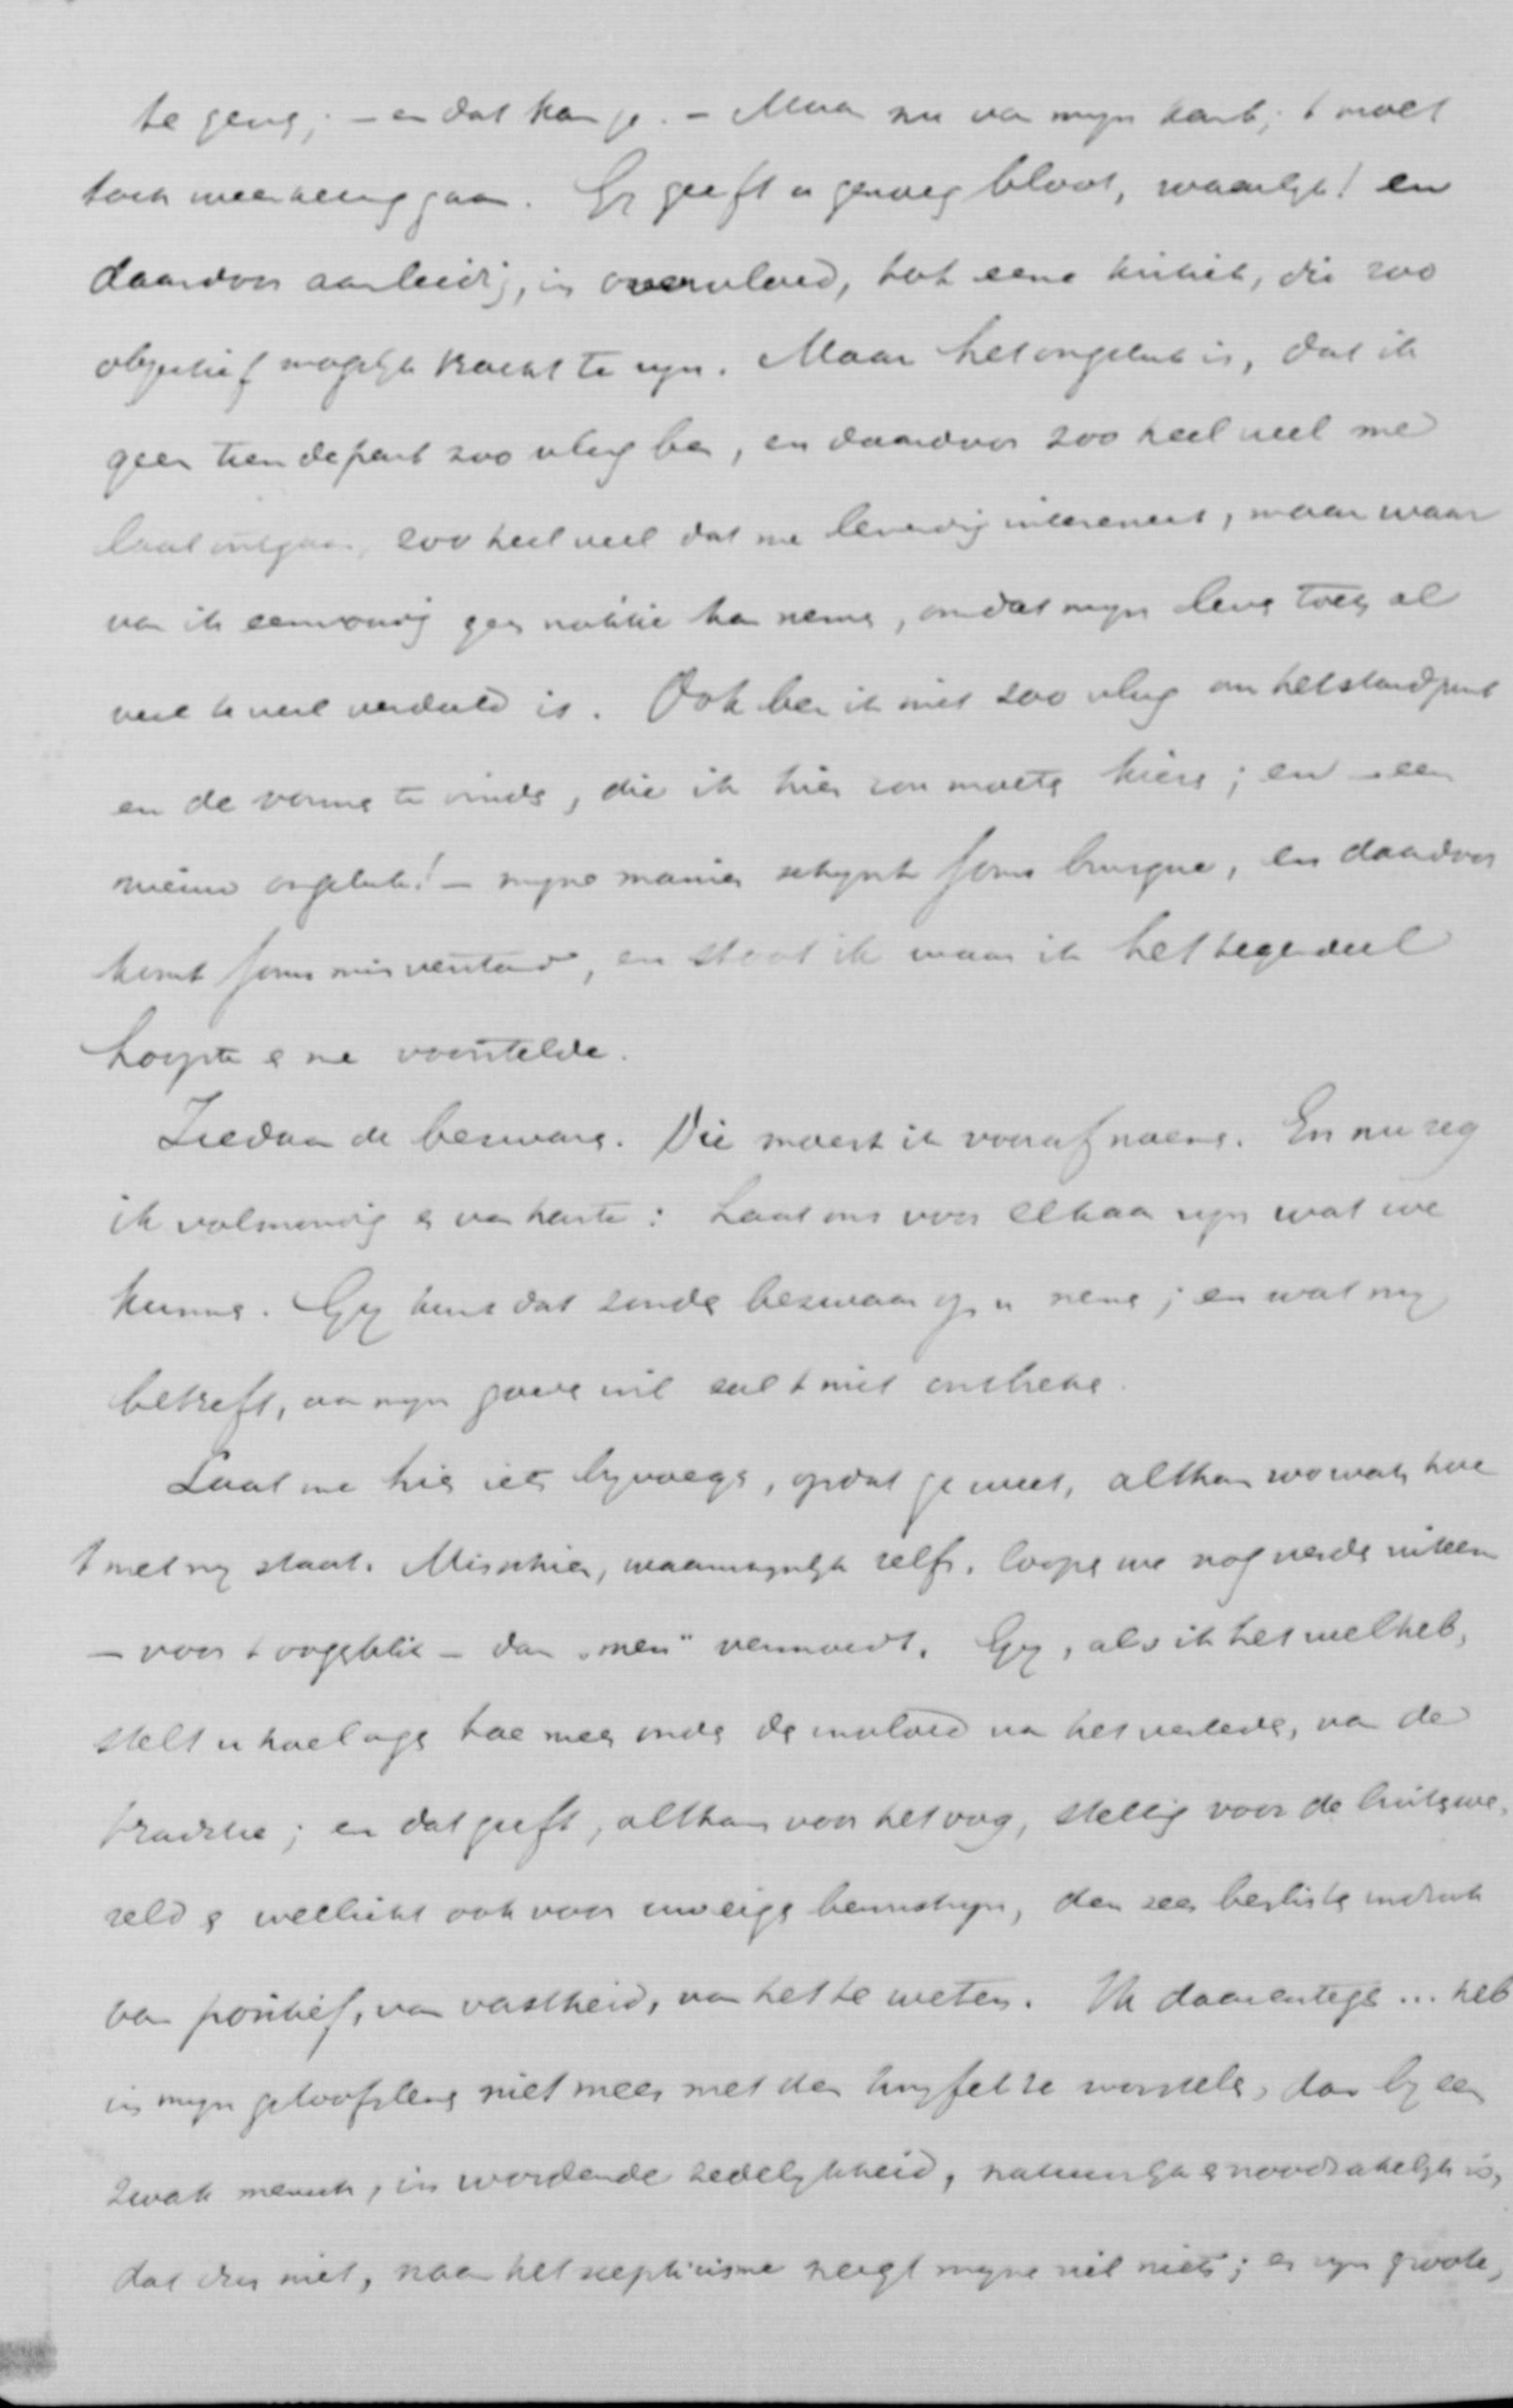 te geven; – en dat kan je. – Maar nu van mijn kant; 't moet
toch wederkeerig gaan. Gij geeft u genoeg bloot, waarlijk! en
daardoor aanleiding, in overvloed, tot eene kritiek, die zoo
objectief mogelijk tracht te zijn. Maar het ongeluk is, dat ik
geen tiende part zoo vlug ben, en daardoor zoo heel veel me
laat ontgaan, zoo heel veel dat me levendig interesseert, maar waar
van ik eenvoudig geen notitie kan nemen, omdat mijn leven toch al
veel te veel verdeeld is. Ook ben ik niet zoo vlug om het standpunt
en de vorme te vinden, die ik hier zou moeten kiezen; en – een
nieuw ongeluk! – mijne manier schijnt soms brusque, en daardoor
komt soms misverstand, en stoot ik waar ik het tegendeel
hoopte en me voorstelde.
Ziedaar de bezwaren. Die moest ik vooraf noemen. En nu zeg
ik volmondig en van harte: Laat ons voor elkaar zijn wat we
kunnen. Gij kunt dat zonder bezwaar op u nemen; en wat mij
betreft, aan mijn goeden wil zal 't niet ontbreken.
Laat me hier iets bijvoegen, opdat ge weet, althans zoowat, hoe
't met mij staat. Misschien, waarschijnlijk zelfs, loopen we nog verder uiteen
– voor 't oogenblik – dan „men" vermoedt. Gij, als ik het wel heb,
stelt u hoe langer hoe meer onder de invloed van het verleden, van de
traditie; en dat geeft, althans voor het oog, stellig voor de buitenwe-
reld en wellicht ook voor uw eigen bewustzijn, den zeer beslisten indruk
van positief, van vastheid, van het te weten. Ik daarentegen ... heb
in mijn geloofsleven niet meer met den twijfel te worstelen, dan bij een
zwak mensch, in wordende zedelijkheid, natuurlijk en noodzakelijk is,
dat dus niet, naar het scepticisme neigt mijne ziel niets; er zijn groote,